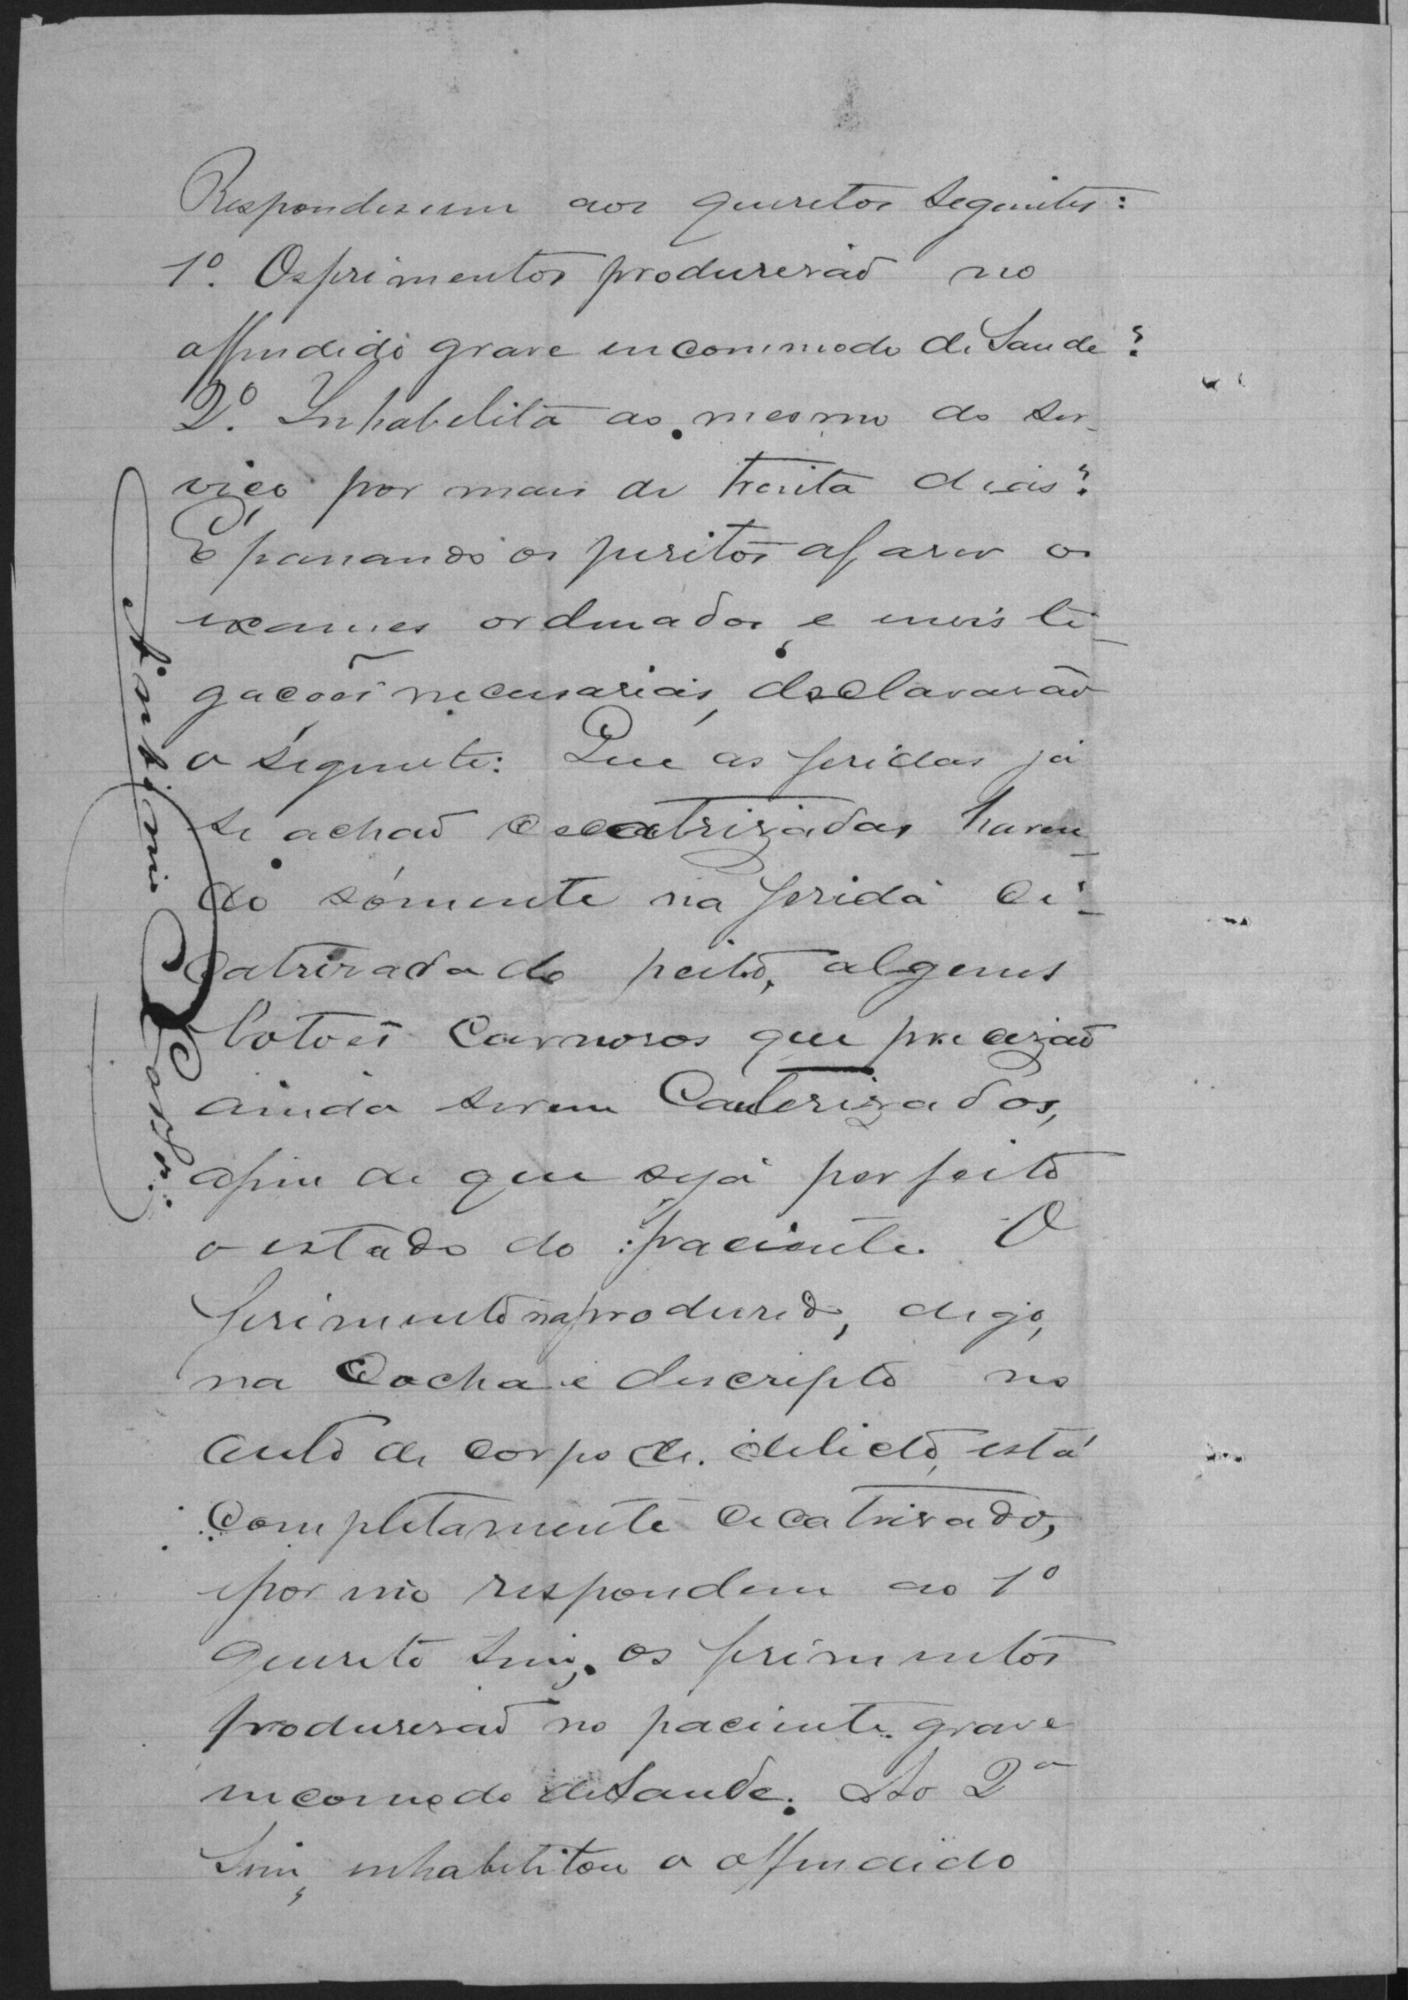 Responderem aos queretos seguintes:
1º. Os ferimentos produzirão no
offendido grave incommodo de Saude?
2º. Inhabelita ao mesmo do ser-
viço por mais de trenta dias?
E passando os peritos a fazer os
exames ordenados, e invisti-
gacoês necessarias, desclararão
o seguinte: Que as feridas já
se achaõ cecatrizadas haven-
do sómente na ferida ci-
catrizada do peito, alguns
botoês Carnosos que precizaõ
ainda serem Cauterizados,
afim de que seja perfeito
o estado do paciente. O
ferimento na produzido, digo,
na Cocha e descripto no
auto de corpo de delicto, está
completamente cecatrizado,
e por isso respondem ao 1º
quereto sim, os ferimentos
produziraõ no paciente grave
incomodo de Saude. Ao 2º
Sim, inhabilitou o offendido
Antonio Castro